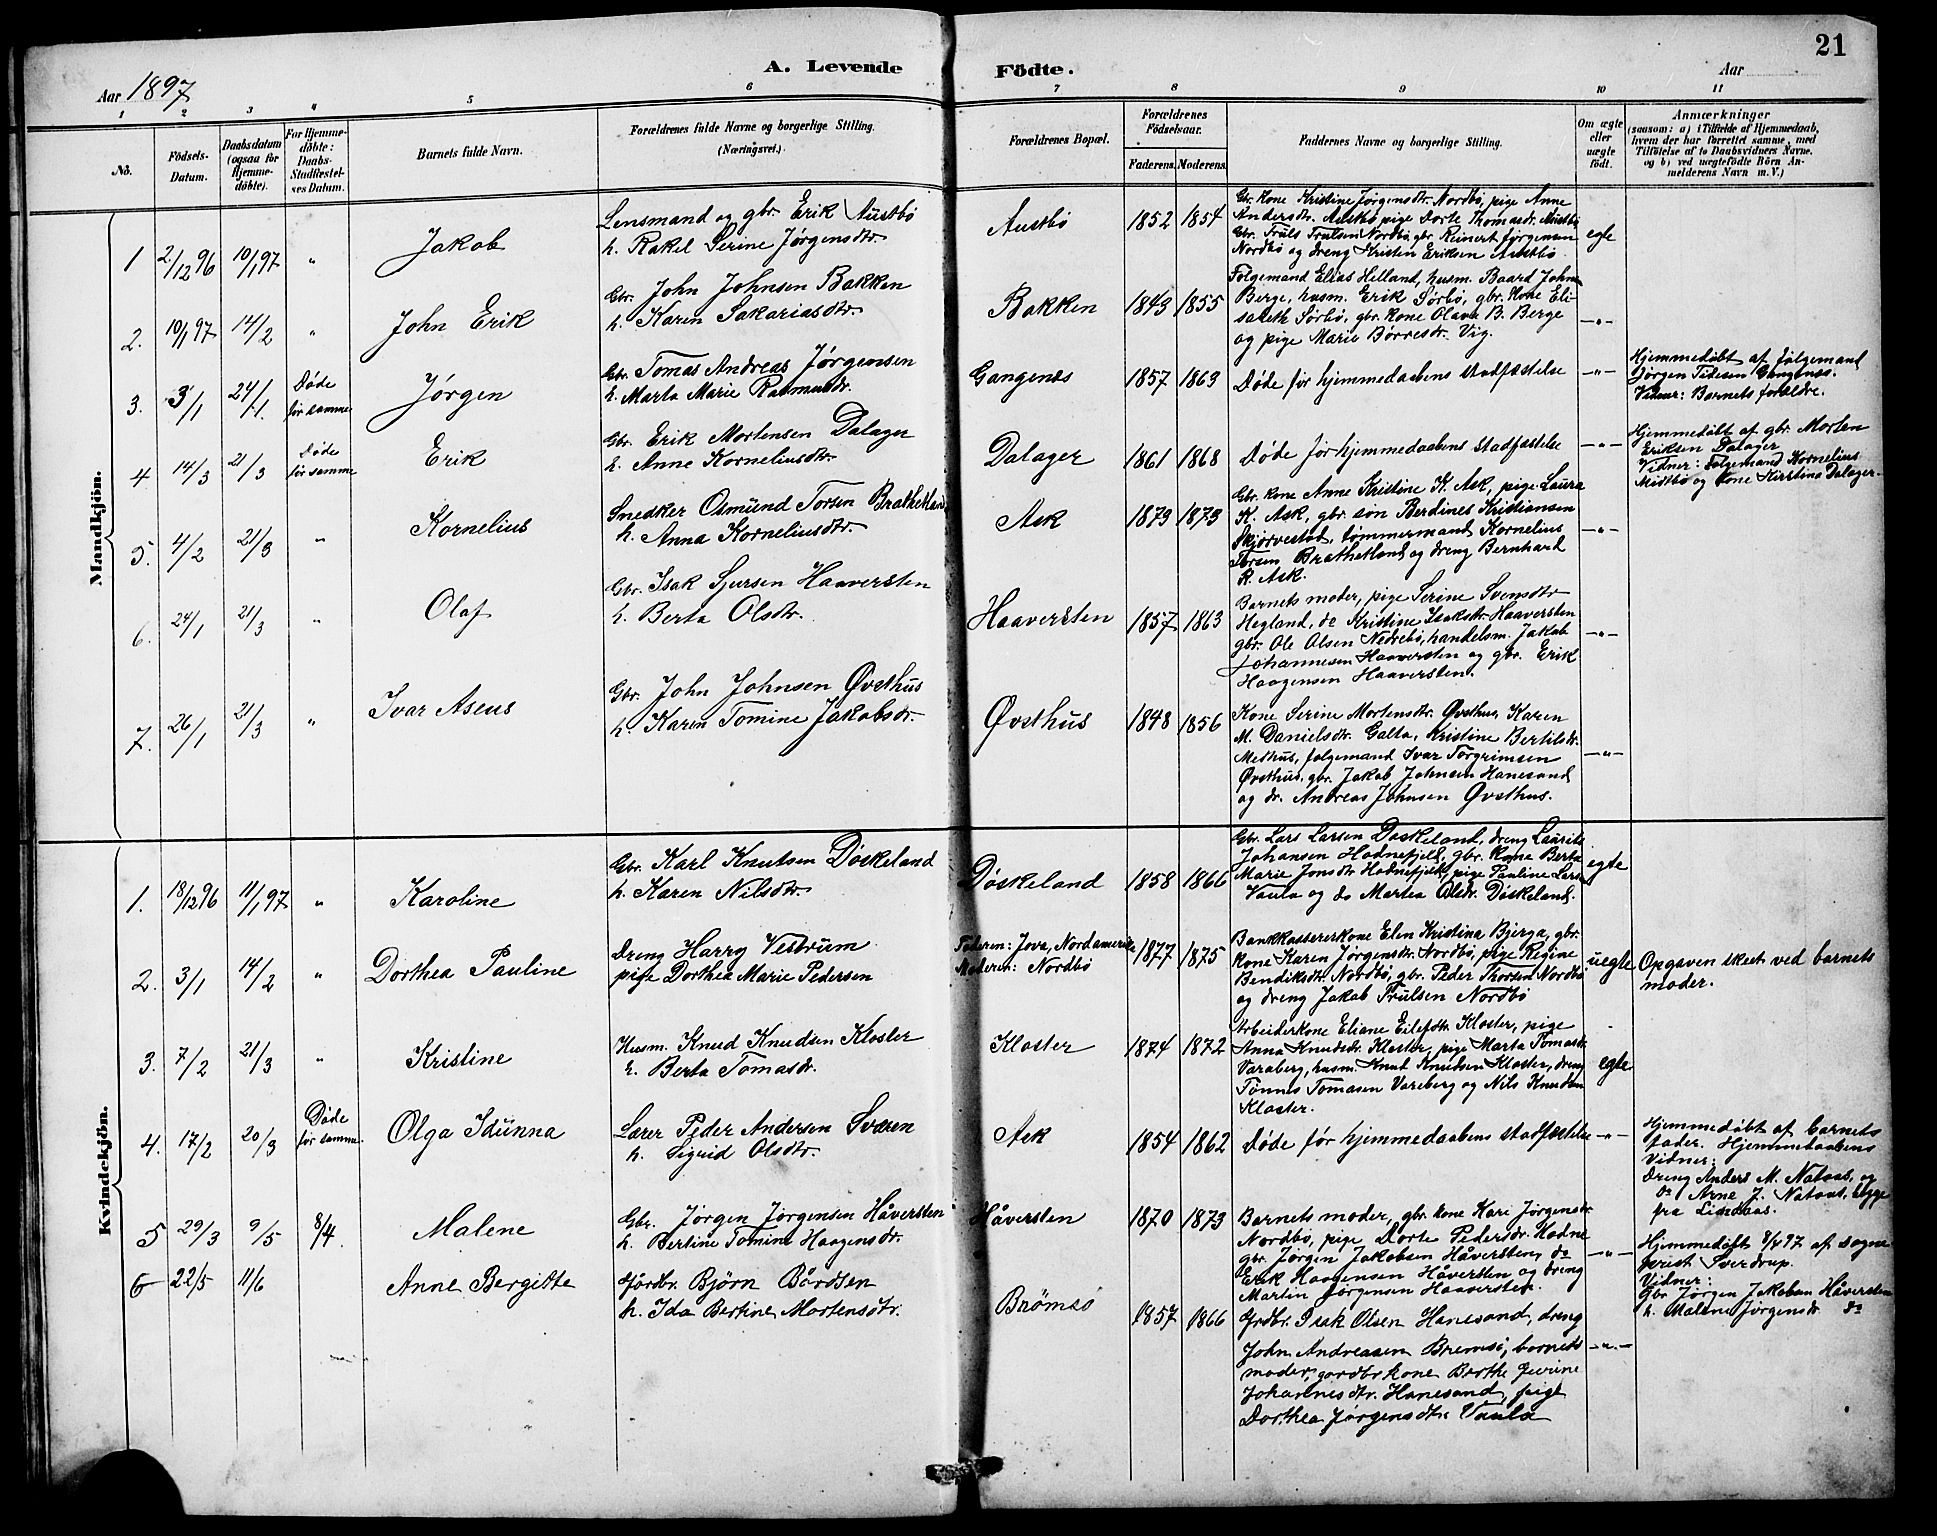 21
A. Levende Födte.
Aar 1897
Aar
1 2 3 4 5 6 7 8 9 10 11
No.
Födsels-Datum.
Daabsdatum (ogsaa for Hjemme-döbte).
For Hjemme-döbte: Daabs-Stadfæstel-ses Datum.
Barnets fulde Navn.
Forældrenes fulde Navne og borgerlige Stilling.
(Næringsvei.)
Forældrenes Bopæl.
Forældrenes Födselsaar.
Faderens. Moderens.
Faddernes Navne og borgerlige Stilling.
Om ægte eller uægte födt.
Anmærkninger
(saasom: a) i Tilfælde af Hjemmedaab,
hvem der har forrettet samme, med
Tilföielse af to Daabsvidners Navne,
og b) ved uægtefödte Börn An-
melderens Navn m. V.)
Mandkjön.
1 2/12 96 10/1 97 " Jakob
Lensmand og gbr. Erik Austbö
h. Rakel Serine Jørgensdtr.
Austbö 1852 1854
Gbr. Kone Kristine Jørgensdtr. Nordbö, pige Anne
Andersdtr. Austbö, pige Dorte Thomasdr. Austbö,
Gbr. Truls Trulsen Nordbö, gbr. Reinert Jörgensen
Nordbö og dreng Kristen Eriksen Austbö.
egte
2. 10/1 97 14/2 " John Erik
Gbr. John Johnsen Bakken
h. Karen Sakariasdtr.
Bakken 1843 1855
Folgemand Elias Helland, husm. Baard Johns
Berge, husm. Erik Sörbö, gbr. Kone Eli-
sabeth Sörbö, gbr. kone Olava B. Berge
og pige Marie Börresdr. Vig.
—"—
3. 3/1 24/1. Døde før samme Jörgen
Gbr. Tomas Andreas Jörgensen
h. Marta Marie Rasmusdr.
Gangenæs 1857 1863 Døde før hjemmedaabens stadfæstelse —"—
Hjemmedøbt af følgemand
Jörgen Tidesen Gangenæs.
Vidner: Barnets forældre.
4 14/3 21/3 Døde før samme Erik
Gbr. Erik Mortensen Dalager
h. Anne Korneliusdtr.
Dalager 1861 1868 Døde før hjemmedaabens stadfæstelse —"—
Hjemmedøbt af gbr. Morten
Eriksen Dalager
Vidner: Følgemand Kornelius
Midtbö og kone Kirstina Dalager.
5. 4/2 21/3 " Kornelius
Snedker Osmund Torsen Brathetland
h. Anna Korneliusdtr.
Ask 1873 1873
Gbr. kone Anne Kristine K. Ask, pige Laura
K. Ask, gbr. søn Berdines Kristiansen
Skjörvestad, tømmermand Kornelius
Torsen Brathetland og dreng Bernhard
R. Ask.
—"—
6. 24/1 21/3 " Olaf
Gbr. Isak Sjursen Haaversten
h. Berta Olsdtr.
Haaversten 1857 1863
Barnets moder, pige Serine Svensdtr
Hegland, do Kristine Isaksdtr. Haaversten
gbr. Ole Olsen Nedrebö, handelsm. Jakob
Johannesen Haaversten og gbr. Erik
Haagensen Haaversten.
—"—
7. 26/1 21/3 " Ivar Aseus
Gbr. John Johnsen Øvsthus
h. Karen Tomine Jakobsdr.
Øvsthus 1848 1856
Kone Serine Mortensdtr. Øvsthus, Karen
M. Danielsdtr. Galta, Kristine Bertilsdr.
Medhus, følgemand Ivar Torgrimsen
Øvsthus, gbr. Jakob Johnsen Hanesand
og dr. Andreas Johnsen Øvsthus.
—"—
Kvindekjön.
1. 18/12 96 11/1 97 " Karoline
Gbr. Karl Knutsen Döskeland
h. Karen Nilsdtr.
Döskeland 1858 1866
Gbr. Lars Larsen Döskeland, dreng Laurits
Johansen Hodnefjeld, gbr. kone Berta
Marie Jonsdr. Hodnefjeld, pige Pauline Lars
Vaula og do Martea Olsdr. Döskeland.
egte
2. 3/1 14/2 " Dorthea Pauline
Dreng Harry Vestrum
pige Dorthea Marie Pedersen
Faderen: Jova, Nordamerika
Moderen: Nordbö
1877 1875
Bankkassererkone Elen Kristina Bjerga, gbr.
kone Karen Jørgensdr. Nordbö, pige Regine
Bendiksdtr. Nordbö, gbr. Peder Thorsen Nordbö
og dreng Jakob Trulsen Nordbö
uegte
Opgaven skeet ved barnets
moder.
3. 7/2 21/3 " Kristine
Husm. Knud Knudsen Kloster
h. Berta Tomasdr.
Kloster 1874 1872
Arbeiderkone Eliane Eilefdtr. Kloster, pige
Anna Knudsdr. Kloster, pige Marta Tomasdr.
Varaberg, husm. Knut Knutsen Kloster, dreng
Tönnes Tomasen Vareberg og Nils Knudsen
Kloster.
egte
4. 17/2 20/3 Døde før samme Olga Idunna
Lærer Peder Andersen Sværen
h. Sigrid Olsdtr.
Ask 1854 1862 Døde før hjemmedaabens stadfæstelse —"—
Hjemmedøbt af barnets
fader. Hjemmedaabens
Vidner:
Dreng Anders M. Nataas, og
do Arne J. Nataas, begge
fra Lindaas.
5 29/3 9/5 8/4. Malene
Gbr. Jørgen Jørgensen Håversten
h. Bertine Tomine Haagensdr.
Håversten 1870 1873
Barnets moder, gbr. kone Kari Jørgensdr.
Nordbö, pige Dorte Pedersdr. Hodne
gbr. Jørgen Jakobsen Håversten, do
Erik Haagensen Håversten og dreng
Martin Jørgensen Haaversten.
—"—
Hjemmedøbt 8/4 97 af sogne
prest Sverdrup.
Vidner:
Gbr Jørgen Jakobsen Håversten
h. Malene Jørgensdr. do
6 22/5 11/6 Anne Bergitte
Gårdbr. Björn Bårdsen
h. Ida Bertine Mortensdtr.
Brömsö 1857 1866
Grdbr. Isak Olsen Hanesand, dreng
John Andreasen Bremsö, barnets
moder, gardbrkone Berthe Jevine
Johannesdtr. Hanesand, pige
Dorthea Jørgensdtr. Vaula
—"—